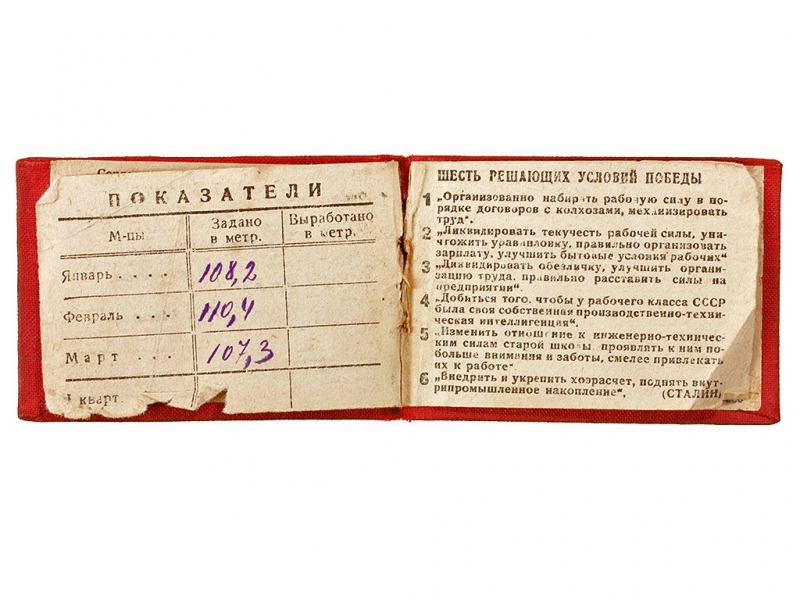 ПОКАЗАТЕЛИ
М-цы Задано в метр. Выработано в метр.
Январь . . . . 108,2
Февраль . . . 110,4
Март . . . 107,3
I кварт.
ШЕСТЬ РЕШАЮЩИХ УСЛОВИЙ ПОБЕДЫ
1 „Организованно набирать рабочую силу в по-
рядке договоров с колхозами, механизировать
труд“.
2 „Ликвидировать текучесть рабочей силы, уни-
чтожить уравниловку, правильно организовать
зарплату, улучшить бытовые условия рабочих“
3 „Ликвидировать обезличку, улучшить органи-
зацию труда, правильно расставить силы на
предприятии“.
4 „Добиться того, чтобы у рабочего класса СССР
была своя собственная производственно-техни-
ческая интеллигенция“.
5 „Изменить отношение к инженерно-техничес-
ким силам старой школы, проявлять к ним по-
больше внимания и заботы, смелее привлекать
их к работе“
6 „Внедрить и укрепить хозрасчет, поднять внут-
рипромышленное накопление“. (СТАЛИН)